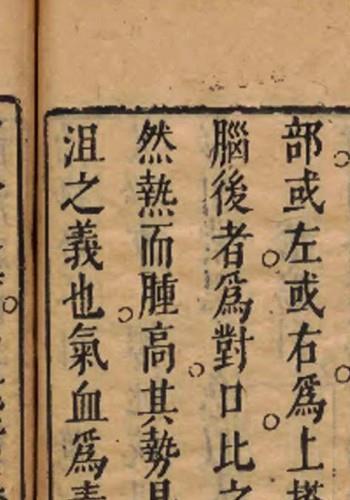 部或左或右爲上搭
腦後者爲對口比之
然熱而腫高其勢
沮之義也氣血爲